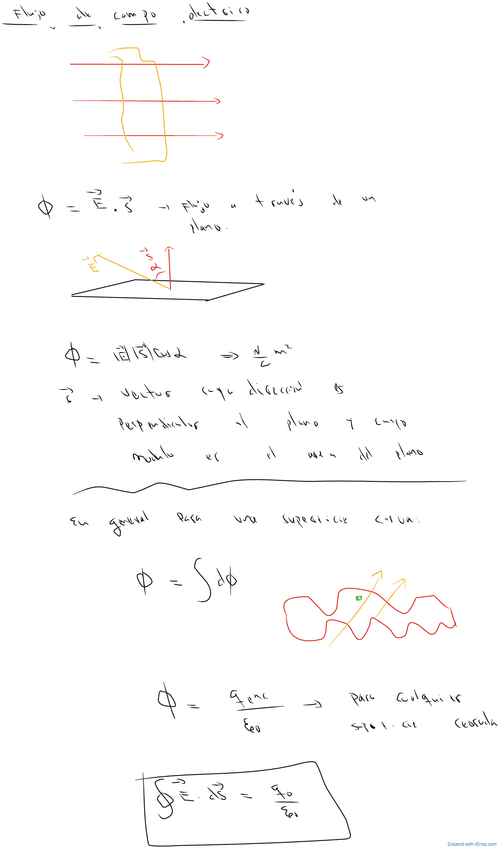 Flujo de campo electrico
Φ = E⃗ . S⃗ → Flujo a través de un
plano.
E⃗ S⃗ α
Φ = |E⃗||S⃗| cos α ⇒ N/C m²
S⃗ → vector cuya dirección es
perpendicular al plano y cuyo
modulo es el area del plano
En general para una superficie curva:
Φ = ∫ dΦ
Φ = q enc / ε₀ → para cualquier
superficie cerrada
∮ E⃗ . dS⃗ = q₀ / ε₀
Created with IDroo.com